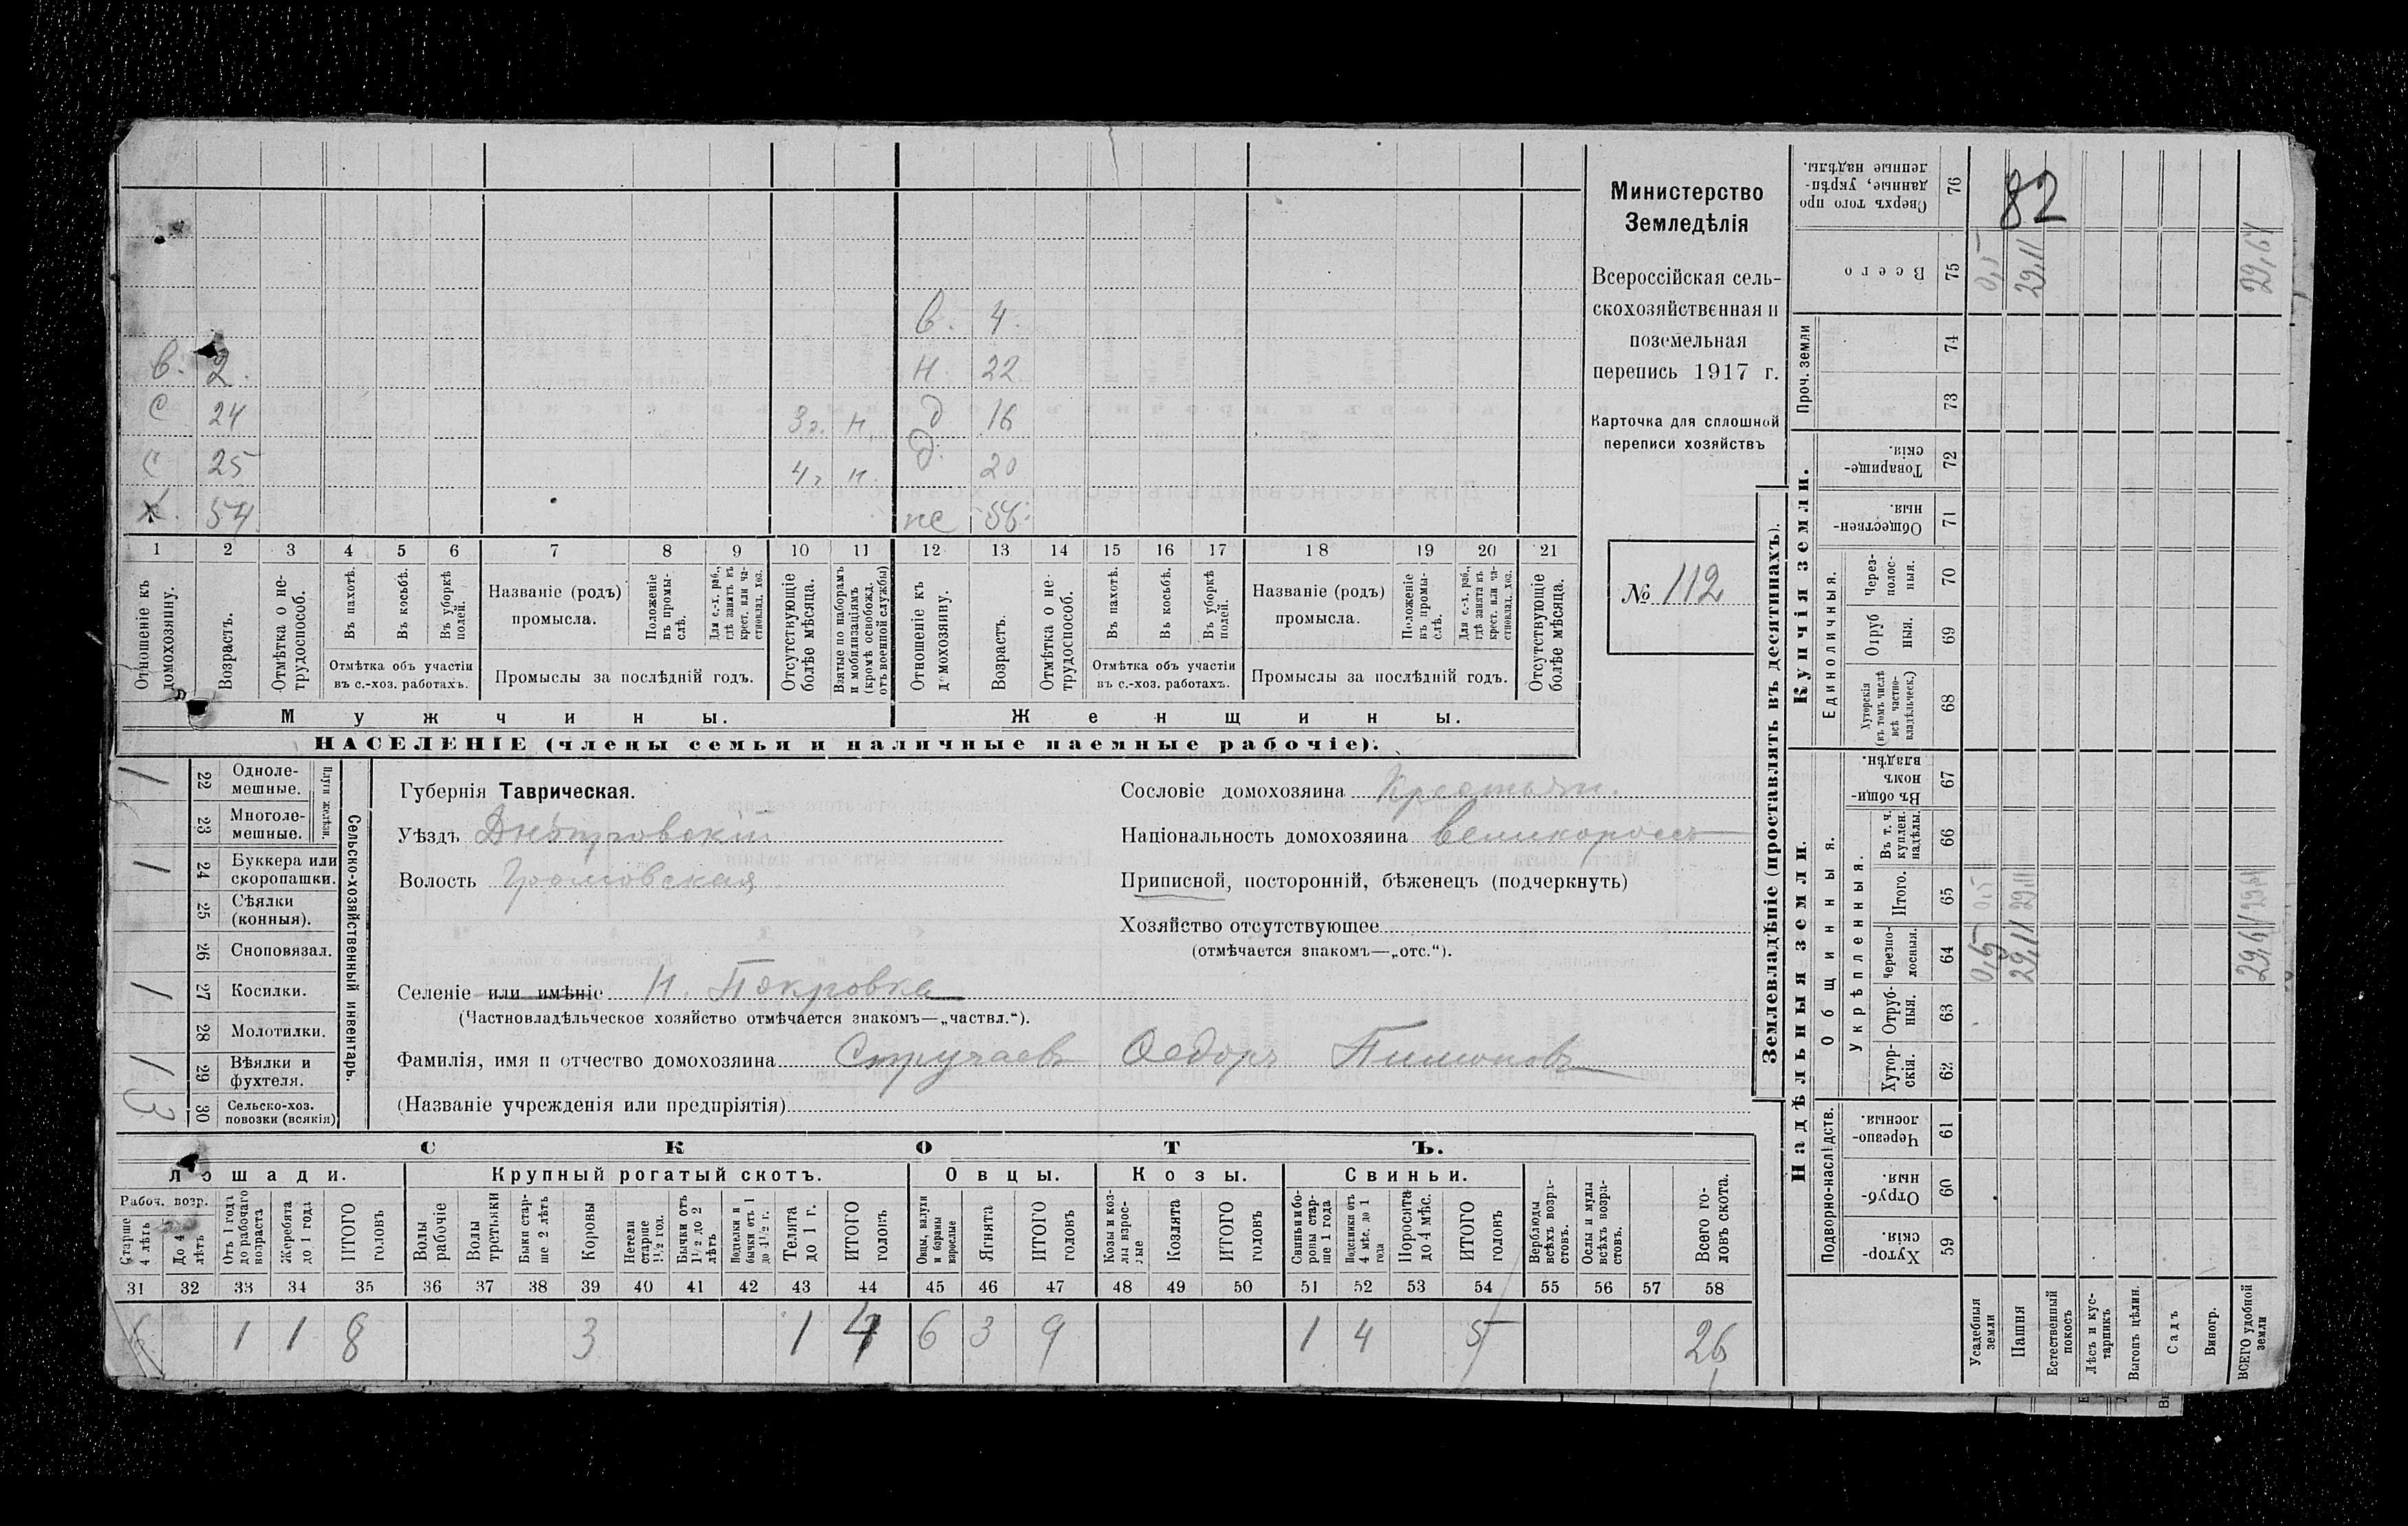 в. 4.
в. 2. н. 22
с 24 3г. н. д 16
с 25 4г н. д. 20
х. 54. же 56.
1 2 3 4 5 6 7 8 9 10 11 12 13 14 15 16 17 18 19 20 21
Отношеніе къ домохозяину.
Возрастъ.
Отмѣтка о не-трудоспособ.
Въ пахотѣ.
Въ косьбѣ.
Въ уборкѣ полей.
Отмѣтка объ участіи
въ с.-хоз. работахъ.
Названіе (родъ)
промысла.
Положеніе въ промы-слѣ.
Для с.-х. раб., гдѣ занятъ въ крест. или ча-стновлад. хоз.
Промыслы за послѣдній годъ.
Отсутствующіе болѣе мѣсяца.
Взятые по наборамъ и мобилизаціямъ (кромѣ освобожд. отъ военной службы)
Отношеніе къ домохозяину.
Возрастъ.
Отмѣтка о не-трудоспособ.
Въ пахотѣ.
Въ косьбѣ.
Въ уборкѣ полей.
Отмѣтка объ участіи
въ с.-хоз. работахъ.
Названіе (родъ)
промысла.
Положеніе въ промы-слѣ.
Для с.-х. раб., гдѣ занята въ крест. или ча-стновлад. хоз.
Промыслы за послѣдній годъ.
Отсутствующіе болѣе мѣсяца.
Мужчины. Женщины.
НАСЕЛЕНІЕ (члены семьи и наличные наемные рабочіе).
Министерство
Земледѣлія
Всероссійская сель-
скохозяйственная и
поземельная
перепись 1917 г.
Карточка для сплошной
переписи хозяйствъ
№ 112
Сельско-хозяйственный инвентарь.
Плуги желѣзн.
1 22 Одноле-мешные.
23 Многоле-мешные.
1 24 Буккера или скоропашки.
25 Сѣялки (конныя).
26 Сноповязал.
1 27 Косилки.
28 Молотилки.
1 29 Вѣялки и фухтеля.
3 30 Сельско-хоз. повозки (всякія)
Губернія Таврическая.
Уѣздъ Днѣпровскій
Волость Громовская
Сословіе домохозяина Крестьян.
Національность домохозяина великороссъ
Приписной, посторонній, бѣженецъ (подчеркнуть)
Хозяйство отсутствующее
(отмѣчается знакомъ—„отс.“).
Селеніе или имѣніе Н. Покровка
(Частновладѣльческое хозяйство отмѣчается знакомъ—„частвл.“).
Фамилія, имя и отчество домохозяина Стручаевъ Ѳедоръ Пимоновъ
(Названіе учрежденія или предпріятія)
СКОТЪ.
Лошади. Крупный рогатый скотъ. Овцы. Козы. Свиньи.
Рабоч. возр.
Старше 4 лѣтъ
До 4 лѣтъ
Отъ 1 года до рабочаго возраста
Жеребята до 1 года
ИТОГО головъ
Волы рабочіе
Волы третьяки
Быки стар-ше 2 лѣтъ
Коровы
Нетели старше 1½ год.
Бычки отъ 1½ до 2 лѣтъ
Подтелки и бычки отъ 1 до 1½ г.
Телята до 1 г.
ИТОГО головъ
Овцы, валухи и бараны взрослые
Ягнята
ИТОГО головъ
Козы и коз-лы взрос-лые
Козлята
ИТОГО головъ
Свиньи и бо-ровы стар-ше 1 года
Подсвинки отъ 4 мѣс. до 1 года
Поросята до 4 мѣс.
ИТОГО головъ
Верблюды всѣхъ возра-стовъ.
Ослы и мулы всѣхъ возра-стовъ.
Всего го-ловъ скота.
31 32 33 34 35 36 37 38 39 40 41 42 43 44 45 46 47 48 49 50 51 52 53 54 55 56 57 58
6 1 1 8 3 1 4 6 3 9 1 4 5 26
Землевладѣніе (проставлять въ десятинахъ).
Купчія земли.
Надѣльныя земли.
Сверхъ того про-данные, укрѣп-ленные надѣлы. 76 82
Всего 75 0,5 29,11 29,61
Проч. земли
74
73
Товарище-скія. 72
Обществен-ныя. 71
Единоличныя.
Через-полос-ныя. 70
Отруб ныя. 69
Хуторскія (въ томъ числѣ всѣ частно-владѣльческ.) 68
Общинныя.
Въ общи-номъ владѣн. 67
Укрѣпленныя.
Въ т. ч. куплен. надѣлы. 66
Итого. 65 0,5 29,11 29,61
Черезпо-лосныя. 64 0,5 29,11 29,61
Отруб-ныя. 63
Хутор-скія. 62
Подворно-наслѣдств.
Черезпо-лосныя. 61
Отруб-ныя. 60
Хутор-скія. 59
Усадебныя земли
Пашня
Естественный покосъ
Лѣсъ и кус-тарникъ
Выгонъ цѣлин.
Садъ
Виногр.
ВСЕГО удобной земли